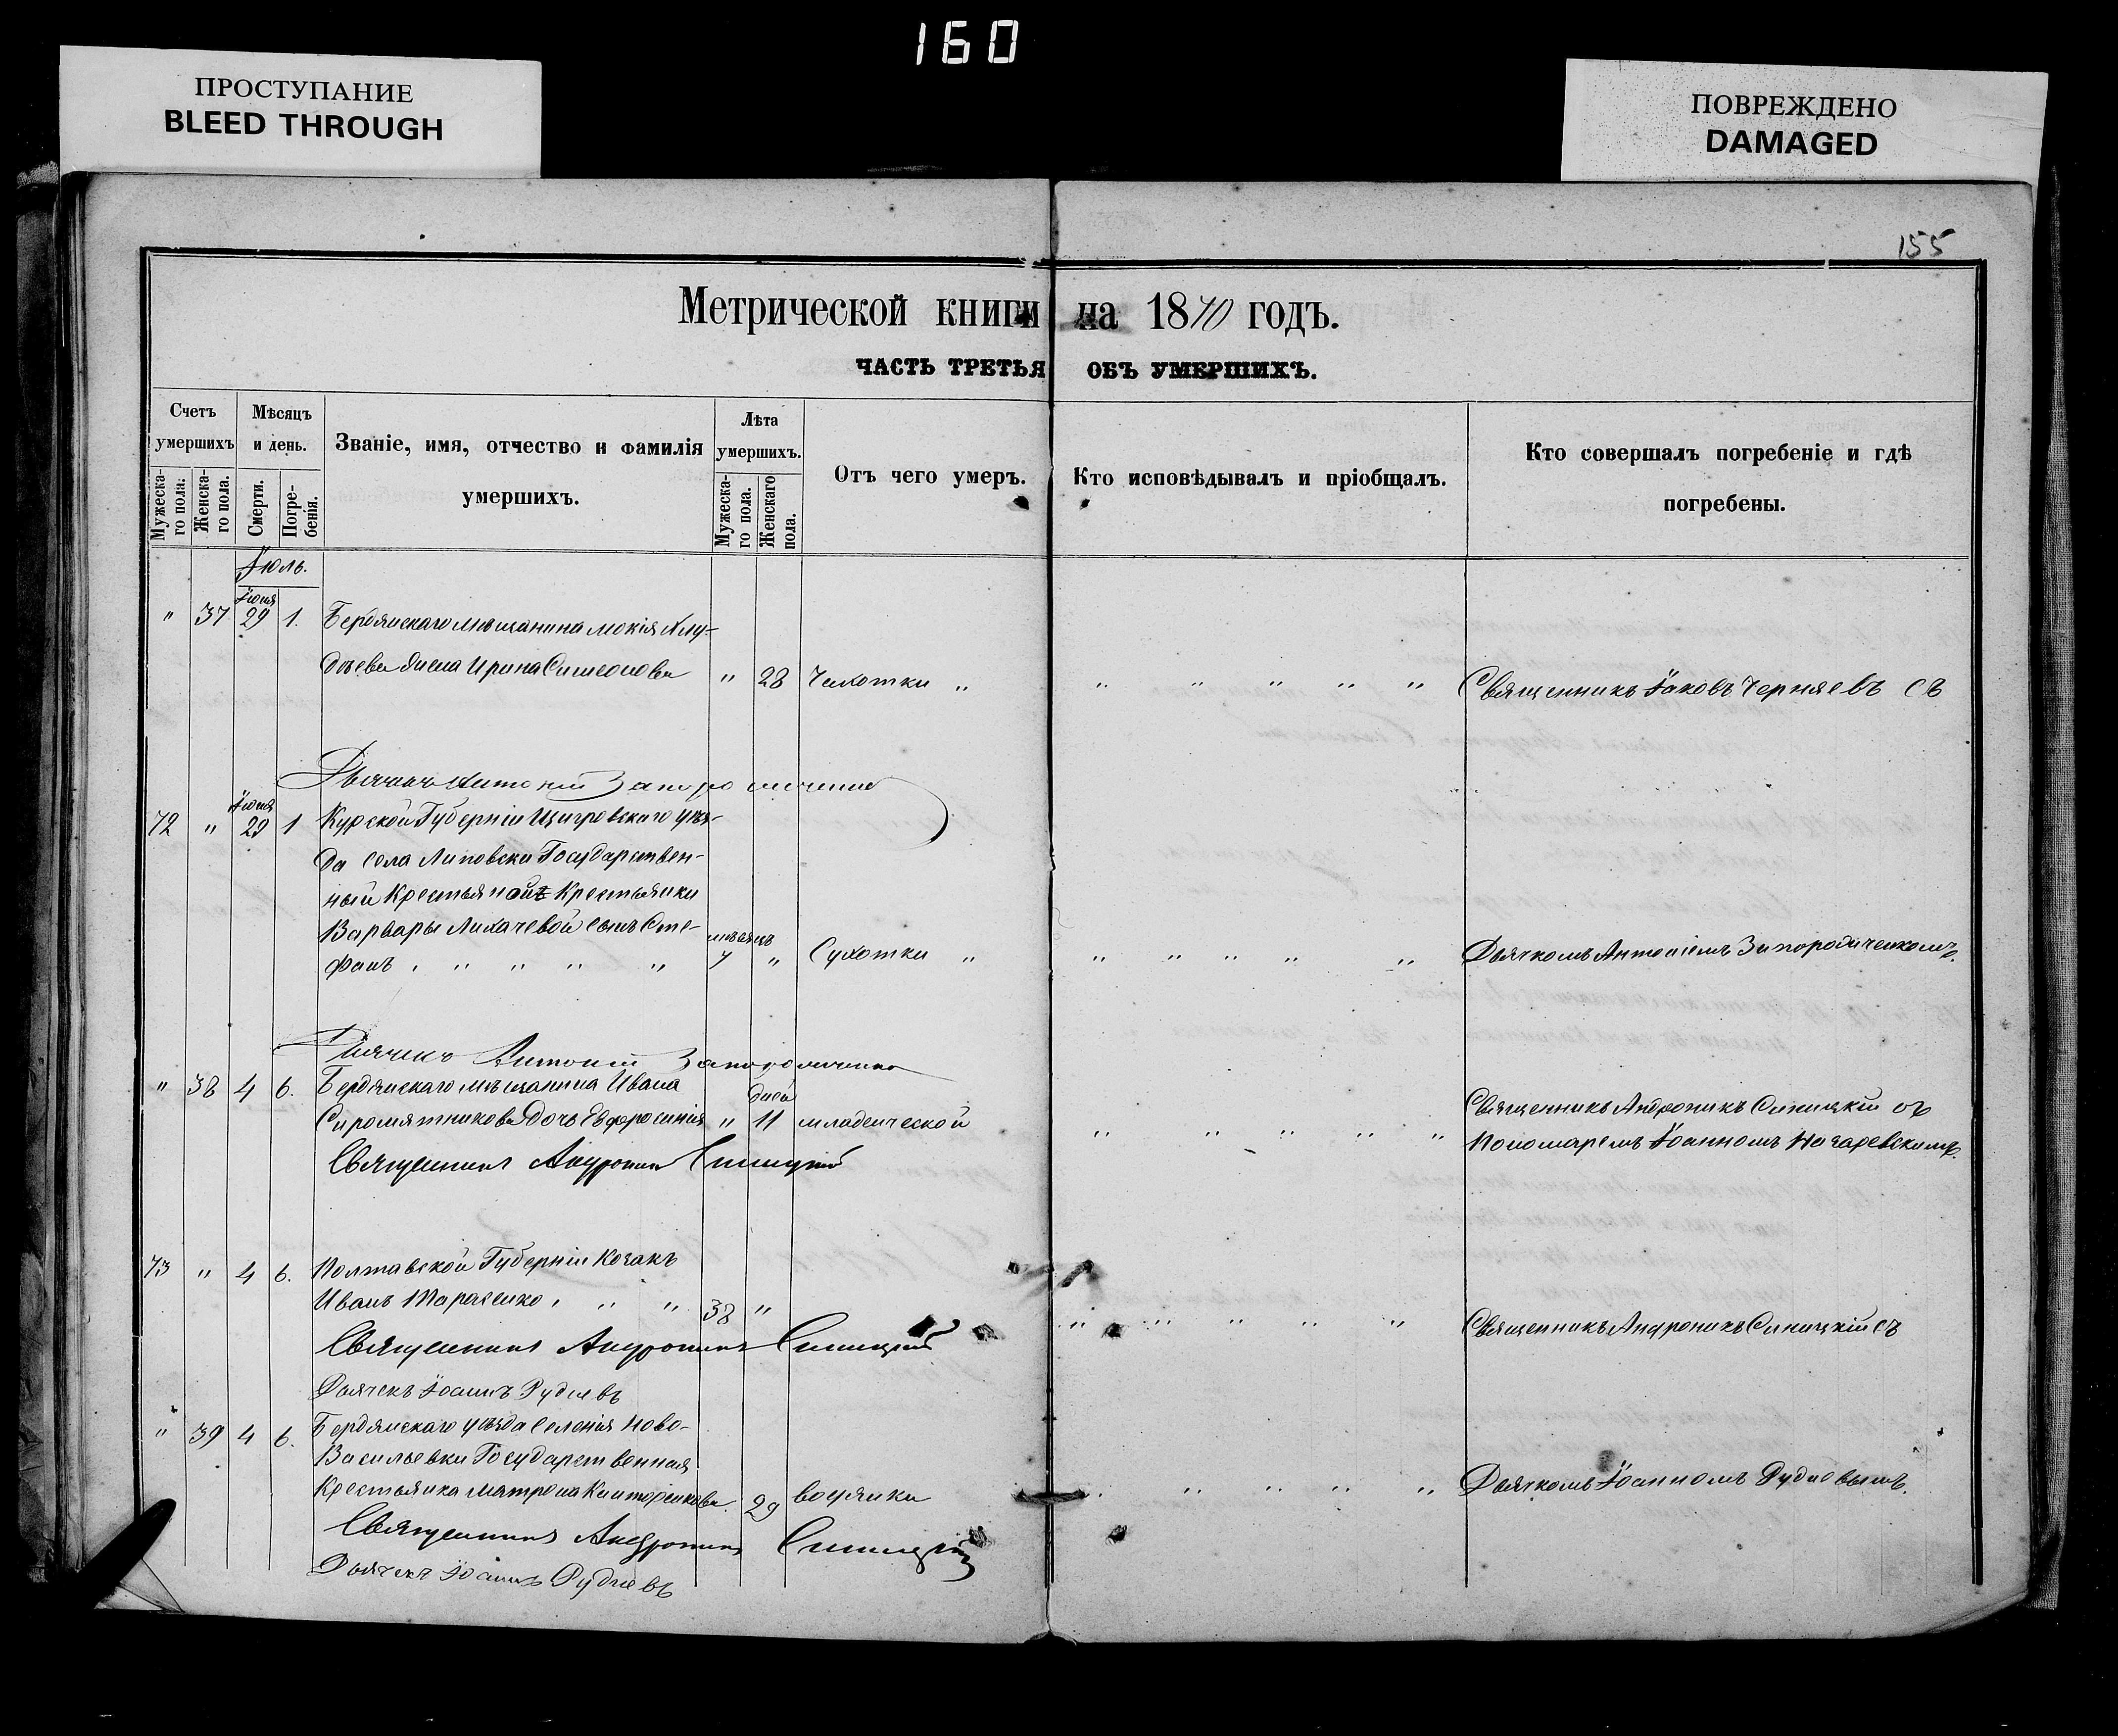 160
ПРОСТУПАНИЕ
BLEED THROUGH
ПОВРЕЖДЕНО
DAMAGED
155
Метрической книги на 1870 годъ.
ЧАСТЬ ТРЕТЬЯ ОБЪ УМЕРШИХЪ.
Счетъ умершихъ
Мужеска-го пола.
Женска-го пола.
Мѣсяцъ и день.
Смерти.
Погре-бенія.
Званіе, имя, отчество и фамилія умершихъ.
Лѣта умершихъ.
Мужеска-го пола.
Женскаго пола.
Отъ чего умеръ.
Кто исповѣдывалъ и пріобщалъ.
Кто совершалъ погребеніе и гдѣ погребены.
Іюль.
Іюня
" 37 29 1. Бердянскаго мѣщанина Мокія
жена Ирина Симеонова " 28 Чахотки " " " " " " Священникъ Іаковъ Черняевъ съ
Дьячекъ Антоній
Іюня
72 " 29 1 Курской Губерніи Щигровскаго уѣз-
да села Липовски Государствен-
ный Крестьянки
Варвары Лихачевой сынъ Сте-
мѣсяцъ
фанъ " " " " " 7 " Сухотки " " " " " " Дьячкомъ Антоніемъ
Дьячекъ Антоній
" 38 4 6. Бердянскаго мѣщанина Ивана
дней
Сиромятникова дочь Евфросинія " 11 младенческой " " " " " Священникъ Андроникъ Синицкій съ
Пономаремъ Іоанномъ
Священникъ Андроникъ Синицкій
73 " 4 6. Полтавской Губерніи Козакъ
Иванъ Тарасенко " " " 38 " " " " " " Священникъ Андроникъ Синицкій съ
Священникъ Андроникъ Синицкій
Дьячекъ Іоаннъ Рудневъ
" 39 4 6. Бердянскаго уѣзда Селенія Ново-
Васильевки Государственная
Крестьянка Матрона 29 водянки " " " " " Дьячкомъ Іоанномъ Рудневымъ.
Священникъ Андроникъ Синицкій
Дьячекъ Іоаннъ Рудневъ